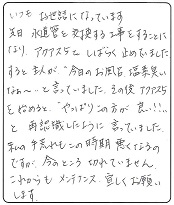 いつも お世話になっています
先日 水道管を交換する工事をすることに
なり、アクアス5を しばらく 止めていました
すると主人が "今日のお風呂 塩素臭い
なぁ〜" と言っていました。その後 アクアス5
を始めると、"やっぱりこの方が 良い!!"
と 再認識したように言っていました。
私の手荒れもこの時期 悪くなるの
ですが、今のところ 切れていません。
これからも メンテナンス 宜しくお願い
します。